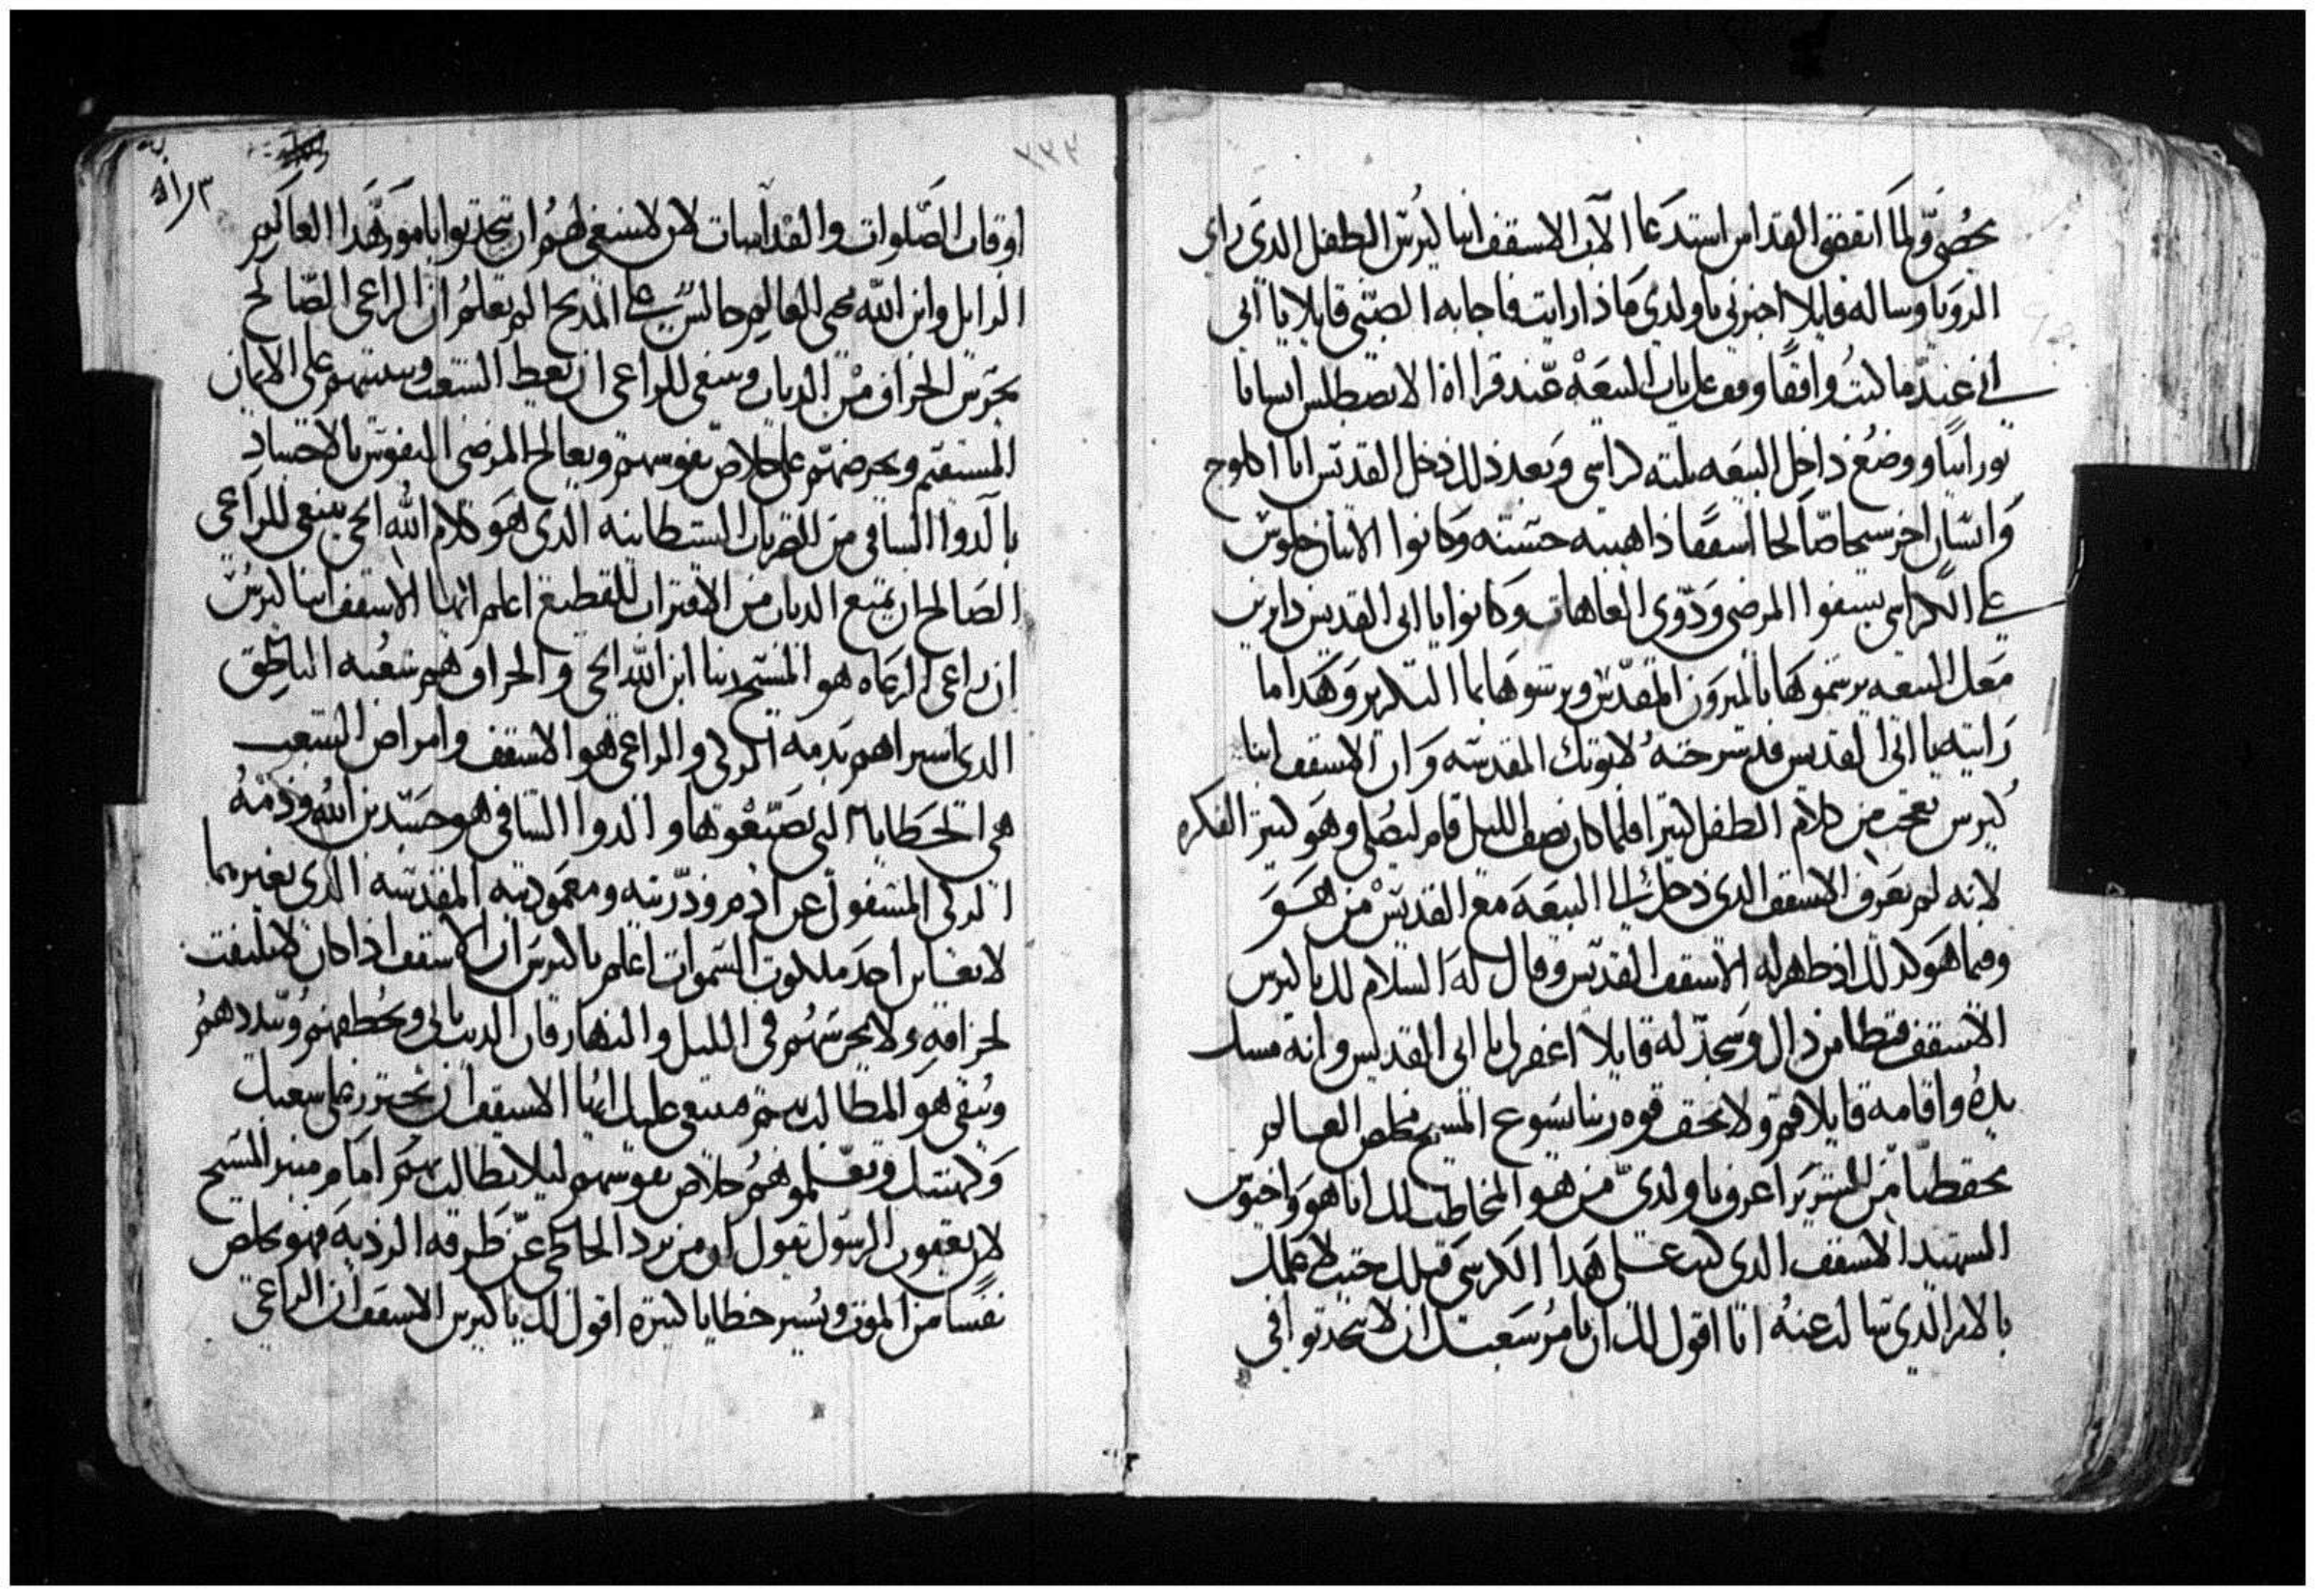 يحصى ولما انقضى القداس استدعا الاب الاسقف انبا كيرس الطفل الدى راى
الرويا وساله قايلا اخبرنى ياولدى ماذا رايت فاجابه الصبى قايلا يا ابى
انى عندما كنت واقفا وقف على باب البيعه عند قرااة الابصطلس انسانا
نورانيا ووضع داخل البيعه تلته كراسى وبعد ذلك دخل القديس ابا اكلوج
وانسان اخر شيخا صالحا اسقفا ذا هيبه حسنه وكانوا الاتنان جلوس
على الكراسى يشفوا المرضى ودوى العاهات وكانوا يا ابى القديس دايرين
معك البيعه يرسموها بالميرون المقدس ويرشوها بما التكريز وهكدا ما
رايته يا ابى القديس قد شرحته لابوتك المقدسه وان الاسقف انبا
كيرس تعجب من كلام الطفل كتيرا فلما كان نصف الليل قام ليصلى وهو كتير الفكره
لانه لم يعرف الاسقف الدى دخل الى البيعه مع القديس من هو
وفيما هو كدلك اذ ظهر له الاسقف القديس وقال له السلام لك يا كيرس
الاسقف فتطامن ذاك وسجد له قايلا اغفر لى يا ابى القديس وانه مسك
يده واقامه قايلا قم ولا تخف قوه ربنا يسوع المسيح مخلص العالم
تحفظنا من الشرير اعرف يا ولدى من هو المخاطب لك انا هو واخيوس
الشهيد الاسقف الدى كنت على هدا الكرسى قبلك جيت لاعملك
بالامر الدى تسالت عنه انا اقول لك ان تامر شعبك ان لا يتحدتوا فى
اوقات الصلوات والقداسات لان لا ينبغى لهم ان يتحدتوا بامور هدا العالم
الزايل وابن الله محيى العالم جالس على المدبح الم تعلم ان الراعى الصالح
يحرس الخراف من الدياب وينبغى للراعى ان يعظ الشعب ويتبتهم على الايمان
المستقيم ويحرضهم على خلاص نفوسهم ويعالج المرضى النفوس بالاجساد
بالدوا الشافى من الضربات الشيطانيه الدى هو كلام الله الحى ينبغى للراعى
الصالح ان يمنع الدياب من الاقتراب للقطيع اعلم ايها الاسقف انبا كيرس
ان راعى الرعاه هو المسيح ربنا ابن الله الحى والخراف هم شعبه الناطق
الدى اشتراهم بدمه الزكى والراعى هو الاسقف وامراض الشعب
هى الخطايا التى يصنعوها والدوا الشافى هو جسد بن الله ودمه
الزكى المسفوك عن ادم وذريته ومعموديته المقدسه الدى بغيرهما
لا يعاين احد ملكوت السموات اعلم يا كيرس ان الاسقف اذا كان لا يلتفت
لخرافه ولا يحرسهم فى الليل والنهار فان الديب ياتى ويخطفهم ويبددهم
ويبقى هو المطالب بهم فينبغى عليك ايها الاسقف ان تحترز على شعبك
وكهنتك وتعلموهم خلاص نفوسهم ليلا تطالب بهم امام منبر المسيح
لان يعقوب الرسول يقول ان من يرد الخاطى عن طرقه الرديه فهو يخلص
نفسا من الموت ويستر خطايا كتيره اقول لك يا كيرس الاسقف ان الراعى